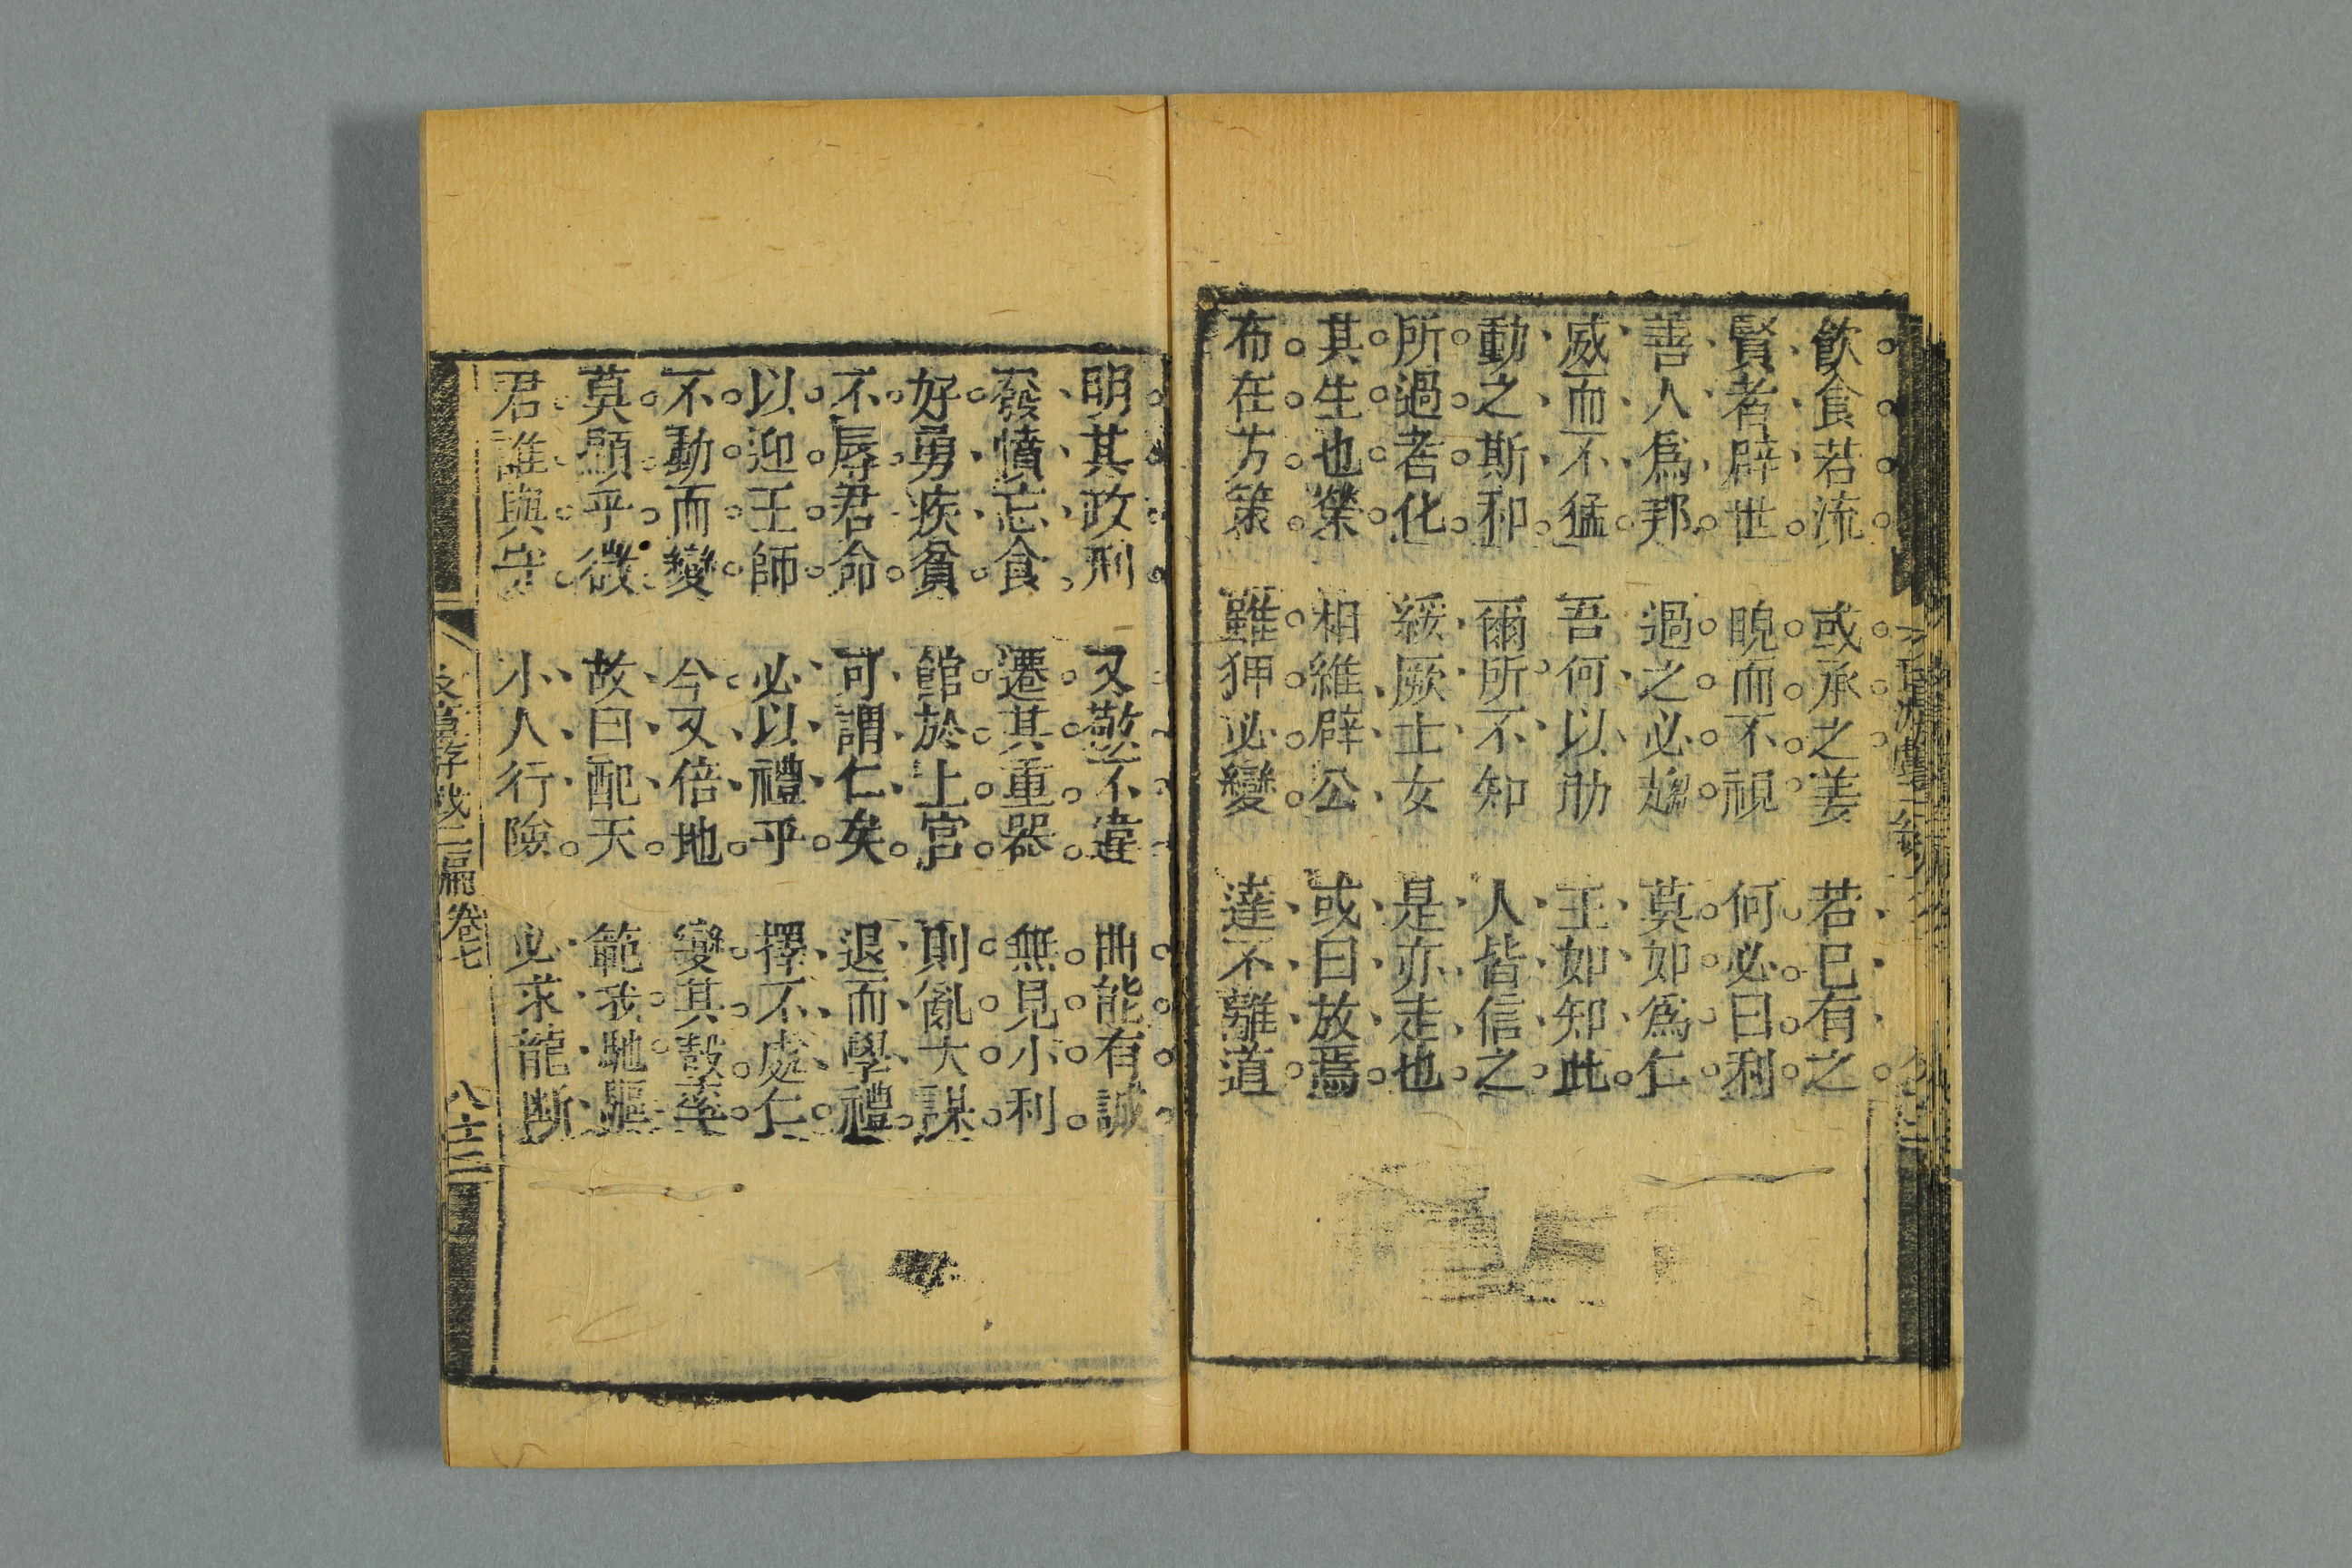 飲食若流 或承之羞 若已有之
賢者辟世 睨而不視 何必曰利
善人爲邦 過之必趨 莫如爲仁
威而不猛 吾何以助 王如知此
動之斯和 爾所不知 人皆信之
所過者化 綏厥士女 是亦走也
其生也榮 相維辟公 或曰放焉
布在方策 雖狎必變 達不離道
明其政刑 又敬不違 曲能有誠
發憤忘食 遷其重器 無見小利
好勇疾貧 館於上宮 則亂大謀
不辱君命 可謂仁矣 退而學禮
以迎王師 必以禮乎 擇不處仁
不動而變 今又倍地 變其彀率
莫顯乎微 故曰配天 範我馳驅
君誰與守 小人行險 必求龍斷
卷七